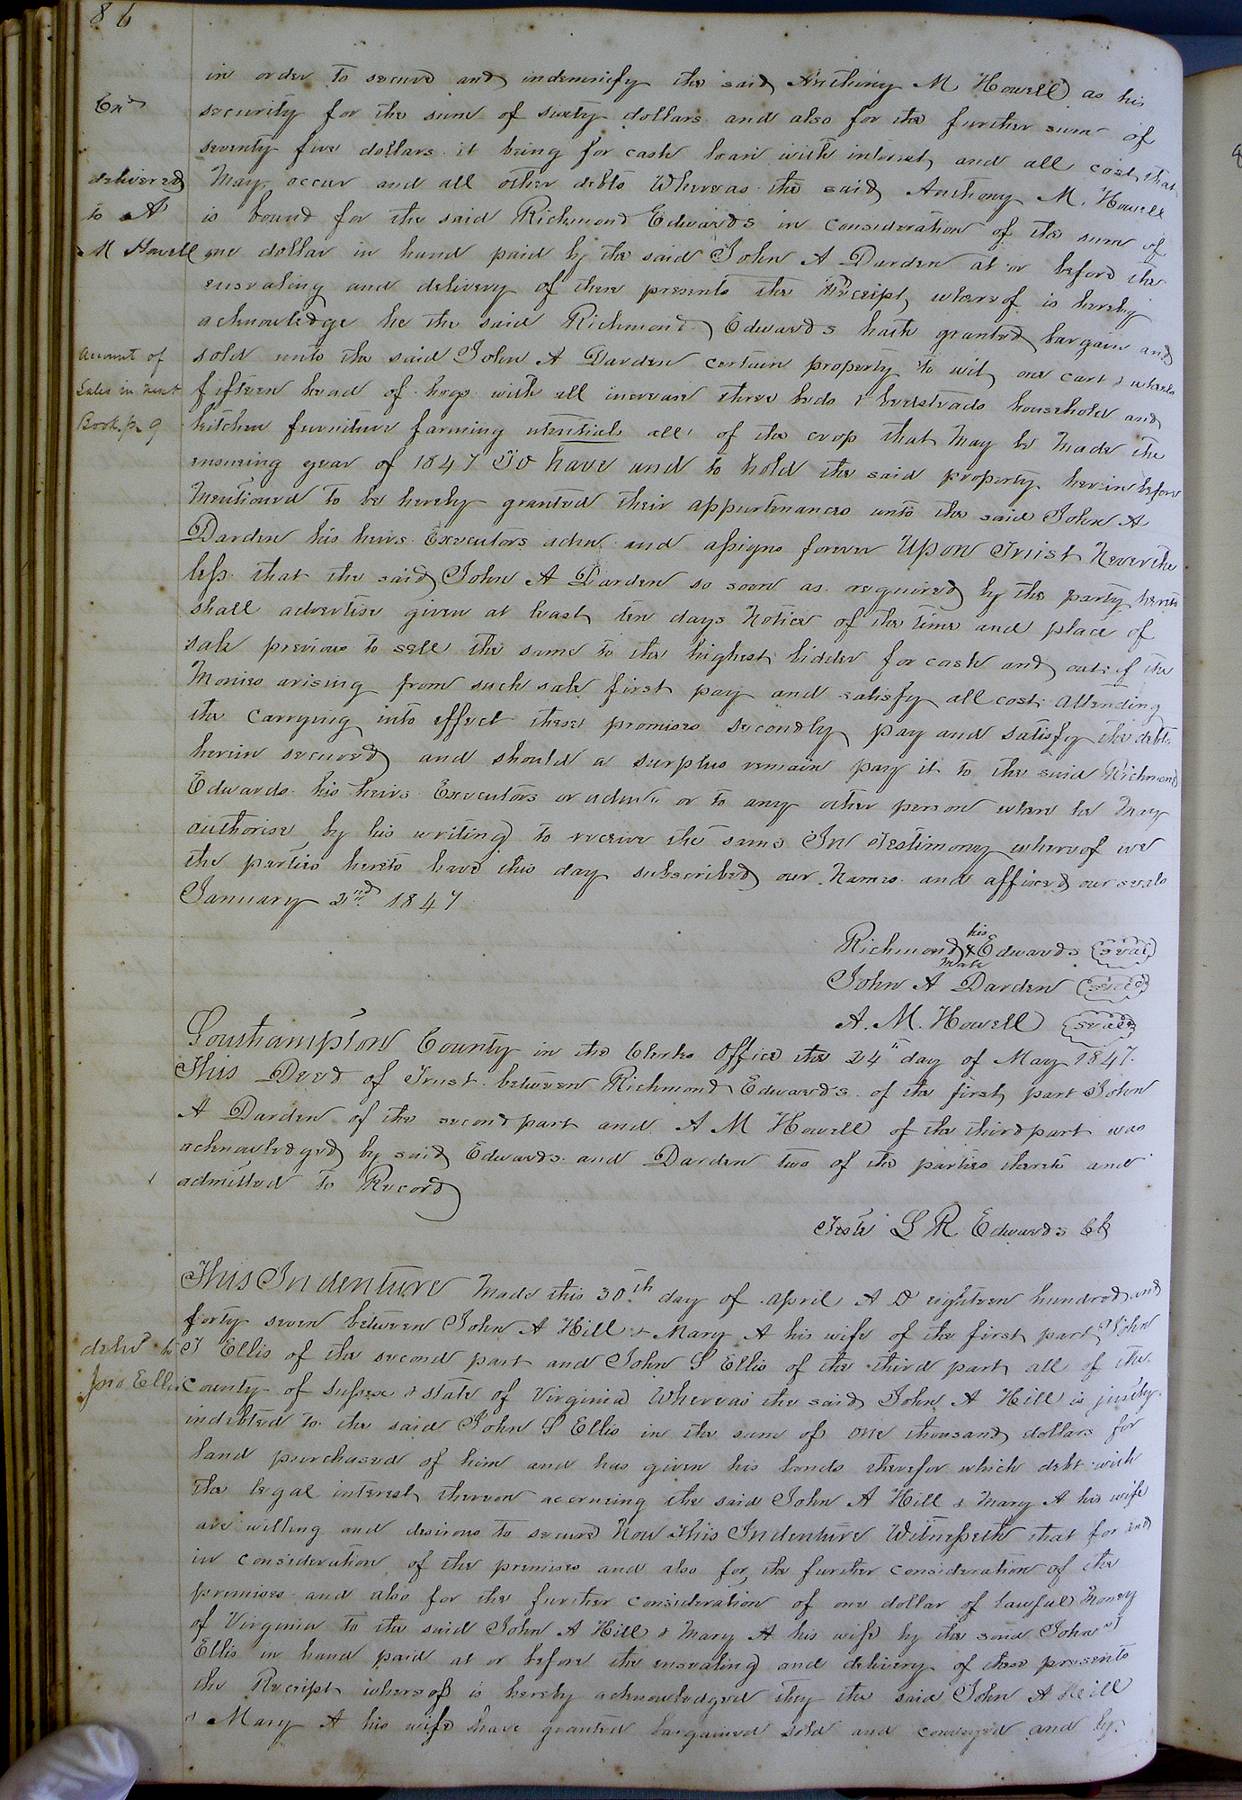 86
in order to secure and indemnify the said Anthony M Howell as his
Exd
security for the sum of sixty dollars and also for the further sum of
seventy five dollars it being for cash loan with interest and all cost that
delivered
May occur and all other debts Whereas the said Anthony M. Howell
to A
is bound for the said Richmond Edwards in consideration of the sum of
M Howell
one dollar in hand paid by the said John A Darden at or before the
ensealing and delivery of these presents the Receipt whereof is hereby
acknowledge he the said Richmond Edwards hath granted bargain and
Amount of
sold unto the said John A Darden certain property to wit, one cart & wheels
Sales in next
fifteen head of hogs with all increase three beds & bedsteads household and
Book p. 9
kitchen furniture farming utentials all of the crop that May be Made the
ensuing year of 1847 To have and to hold the said property hereinbefore
Mentioned to be hereby granted their appurtenances unto the said John A
Darden his heirs Executors adm and assigns forever Upon Trust Neverthe
less that the said John A Darden so soon as required by the party hereto
shall advertise given at least ten days Notice of the time and place of
sale previous to sell the same to the highest bidder for cash and out of the
Monies arising from such sale first pay and satisfy all cost attending
the carrying into effect these promises secondly pay and satisfy the debts
herein secured and should a surplus remain pay it to the said Richmond
Edwards his heirs Executors or adms or to any other person whare he May
authorise by his writing to receive the same In Testimony whereof we
the parties hereto have this day subscribed our Names and affixed our seals
January 2nd 1847
his
Richmond X Edwards (seal)
mark
John A Darden (seal)
A. M. Howell (seal)
Southampton County in the Clerks Office the 24th day of May 1847.
This Deed of Trust between Richmond Edwards of the first part John
A Darden of the second part and A M Howell of the third part was
acknowledged by said Edwards and Darden two of the parties thereto and
admitted to Record
Teste L R Edwards Clk
This Indenture Made this 30th day of April A D eighteen hundred and
forty seven between John A Hill & Mary A his wife of the first part, John
deliv'd to
T Ellis of the second part and John S Ellis of the third part all of the
Jno Ellis
County of Sussex & state of Virginia Whereas the said John A Hill is justly
indebted to the said John S Ellis in the sum of one thousand dollars for
land purchased of him and has given his bonds therefor which debt with
the legal interest thereon accruing the said John A Hill & Mary A his wife
are willing and desirous to secure Now this Indenture Witnesseth that for and
in consideration of the premises and also for the further consideration of the
premises and also for the further consideration of one dollar of lawful Money
of Virginia to the said John A Hill & Mary A his wife by the said John T
Ellis in hand paid at or before the ensealing and delivery of these presents
the Receipt whereof is hereby acknowledged they the said John A Hill
& Mary A his wife have granted bargained sold and conveyed and by